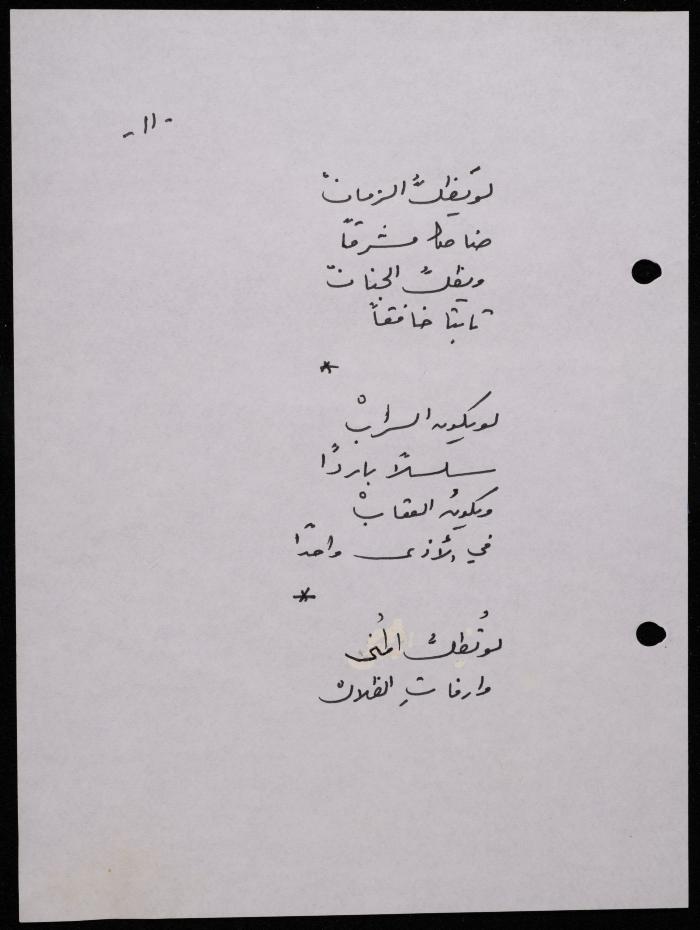 -١١-
لو يَظلُّ الزمانْ
ضاحكا مشرقاً
ويظلُّ الجنانْ
ثابتا خافقاً
*
لو يكون السرابْ
سلسلًا باردًا
ويكونُ العقابْ
في الأذى واحدًا
*
لو تُظلُّ المُنى
وارفاتِ الظلالْ